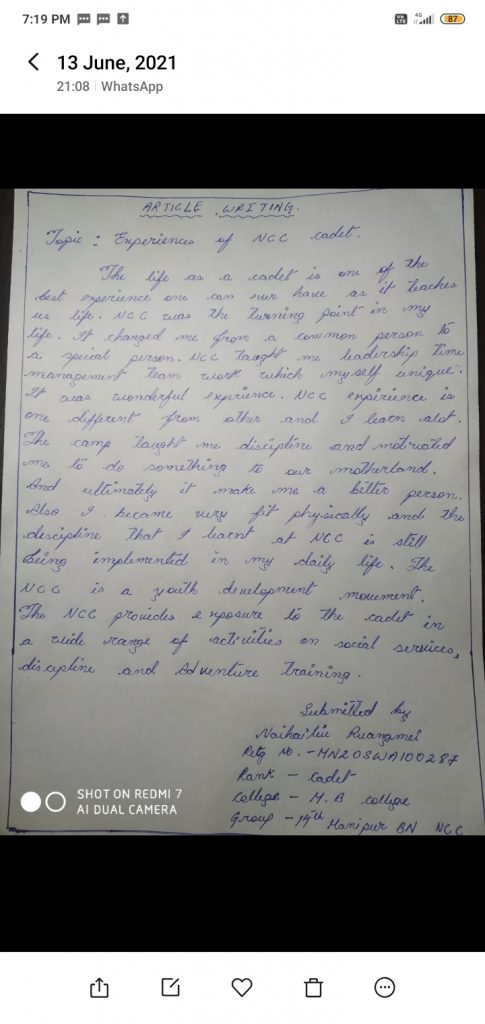 7:19 PM
4G
87
13 June, 2021
21:08 WhatsApp
ARTICLE WRITING.
Topic : Experiences of NCC cadet.
The life as a cadet is one of the
best experience one can ever have as it teaches
us life. NCC was the turning point in my
life. It changed me from a common person to
a special person. NCC taught me leadership time
management team work which myself unique.
It was wonderful experience. NCC experience is
one different from other and I learn alot.
The camp taught me discipline and motivated
me to do something to our motherland.
And ultimately it make me a better person.
Also I became very fit physically and the
descipline that I learnt at NCC is still
being implemented in my daily life. The
NCC is a youth development movement.
The NCC provides exposure to the cadet in
a wide range of activities on social services,
discipline and Adventure training.
Submitted by
Ruangmei
Retg No. - MN20SWA100287
Rank - cadet
College - M.B college
Group - 14th Manipur BN NCC
SHOT ON REDMI 7
AI DUAL CAMERA